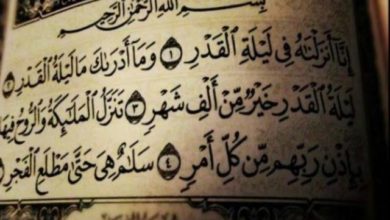 بِسْمِ اللَّهِ الرَّحْمَٰنِ الرَّحِيمِ
إِنَّا أَنزَلْنَٰهُ فِى لَيْلَةِ الْقَدْرِ ١ وَمَا أَدْرَىٰكَ مَا لَيْلَةُ الْقَدْرِ ٢
لَيْلَةُ الْقَدْرِ خَيْرٌ مِّنْ أَلْفِ شَهْرٍ ٣ تَنَزَّلُ الْمَلَٰٓئِكَةُ وَالرُّوحُ فِيهَا
بِإِذْنِ رَبِّهِم مِّن كُلِّ أَمْرٍ ٤ سَلَٰمٌ هِىَ حَتَّىٰ مَطْلَعِ الْفَجْرِ